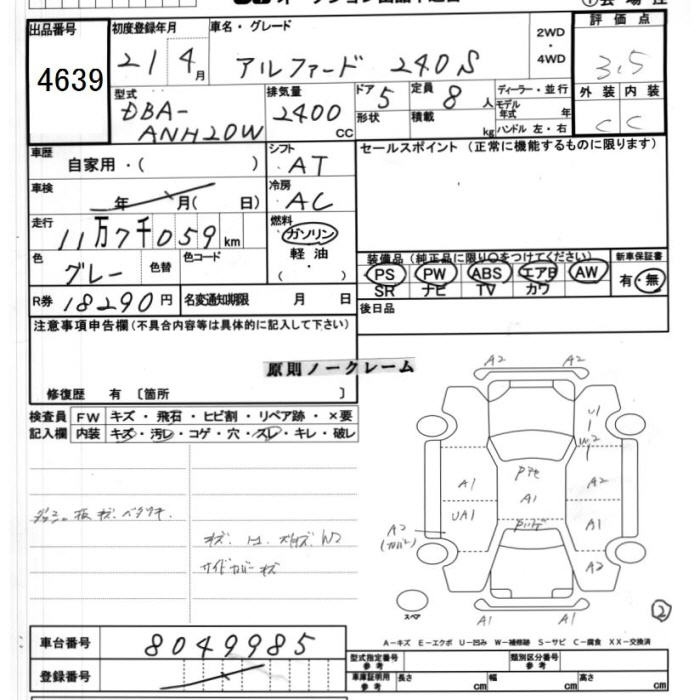 出品番号 初度登録年月 車名・グレード 2WD ・ 4WD 評価点
4639 21 4月 アルファード 240S 3.5
型式 排気量 ドア 定員 ディーラー・並行 外装 内装
DBA-ANH20W 2400CC 5 8人 モデル年式 年 C C
形状 積載 kg ハンドル 左・右
車歴 自家用・( ) シフト AT セールスポイント(正常に機能するものに限ります)
車検 年 月( 日) 冷房 AC
走行 11万7千059km 燃料 ガソリン 軽油 ・ ( )
装備品(純正品に限り○をつけてください) 新車保証書
色 グレー 色替 色コード PS PW ABS エアB AW 有・無
SR ナビ TV カワ
R券 18290円 名変通知期限 月 日 後日品
注意事項申告欄(不具合内容等は具体的に記入して下さい)
原則ノークレーム
修復歴 有 〔箇所 〕
検査員 FW キズ・飛石・ヒビ割・リペア跡・×要
記入欄 内装 キズ・汚レ・コゲ・穴・スレ・キレ・破レ
A2 A2
U1
W2
A1 A1 A2
UA1 A1
A2
A2
スペア A1 A1
2
A-キズ E-エクボ U-凹み W-補修跡 S-サビ C-腐食 XX-交換済
車台番号 8049985
登録番号
型式指定番号 参考 類別区分番号 参考
車庫証明用 参考 長さ cm 幅 cm 高さ cm